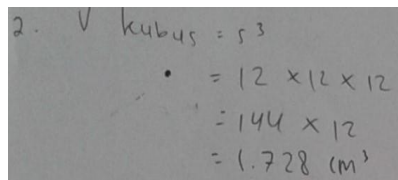 2. V kubus = s³
= 12 × 12 × 12
= 144 × 12
= 1.728 cm³